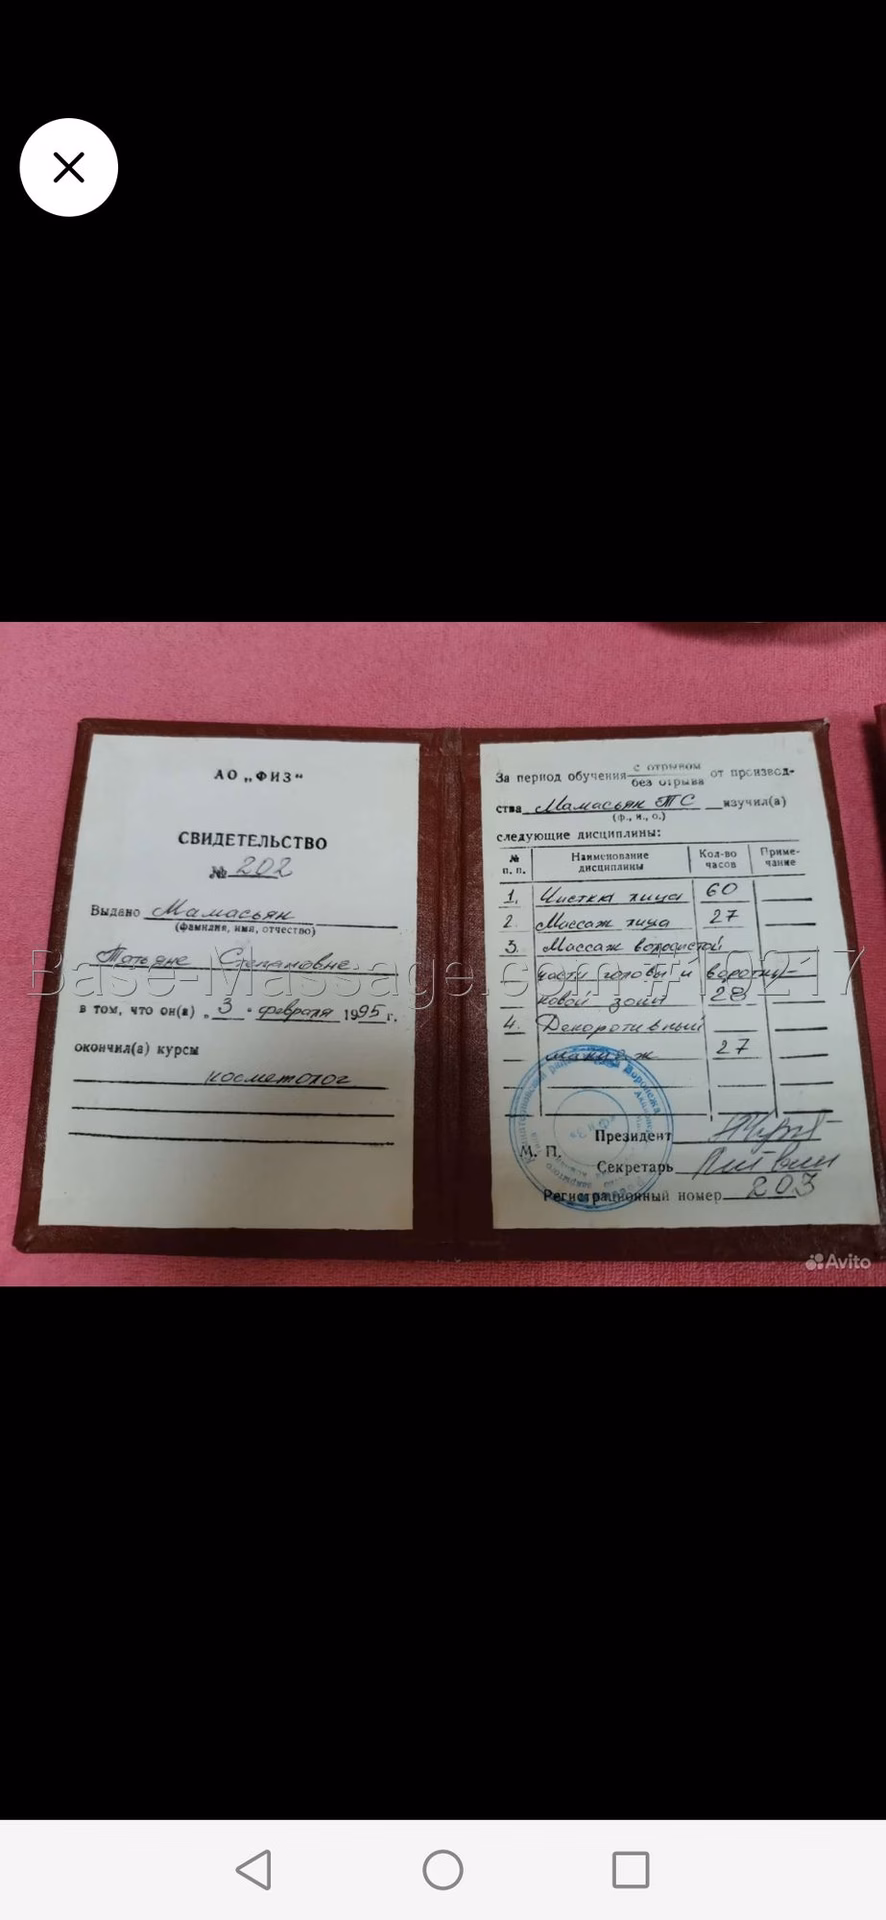 АО „ФИЗ“
СВИДЕТЕЛЬСТВО
№ 202
Выдано Мамасьян
(фамилия, имя, отчество)
Татьяне Степановне
в том, что он(а) „3“ февраля 1995 г.
окончил(а) курсы
косметолог
За период обучения с отрывом
без отрыва от производ-
ства Мамасьян ТС изучил(а)
(ф., и., о.)
следующие дисциплины:
№ п. п. Наименование дисциплины Кол-во часов Приме-чание
1. Чистка лица 60
2. Массаж лица 27
3. Массаж волосистой
части головы и воротни-
ковой зоны 28
4. Декоративный
макияж 27
М. П.
Президент
Секретарь Литвин
Регистрационный номер 203
Base-Massage.com #19217
Avito